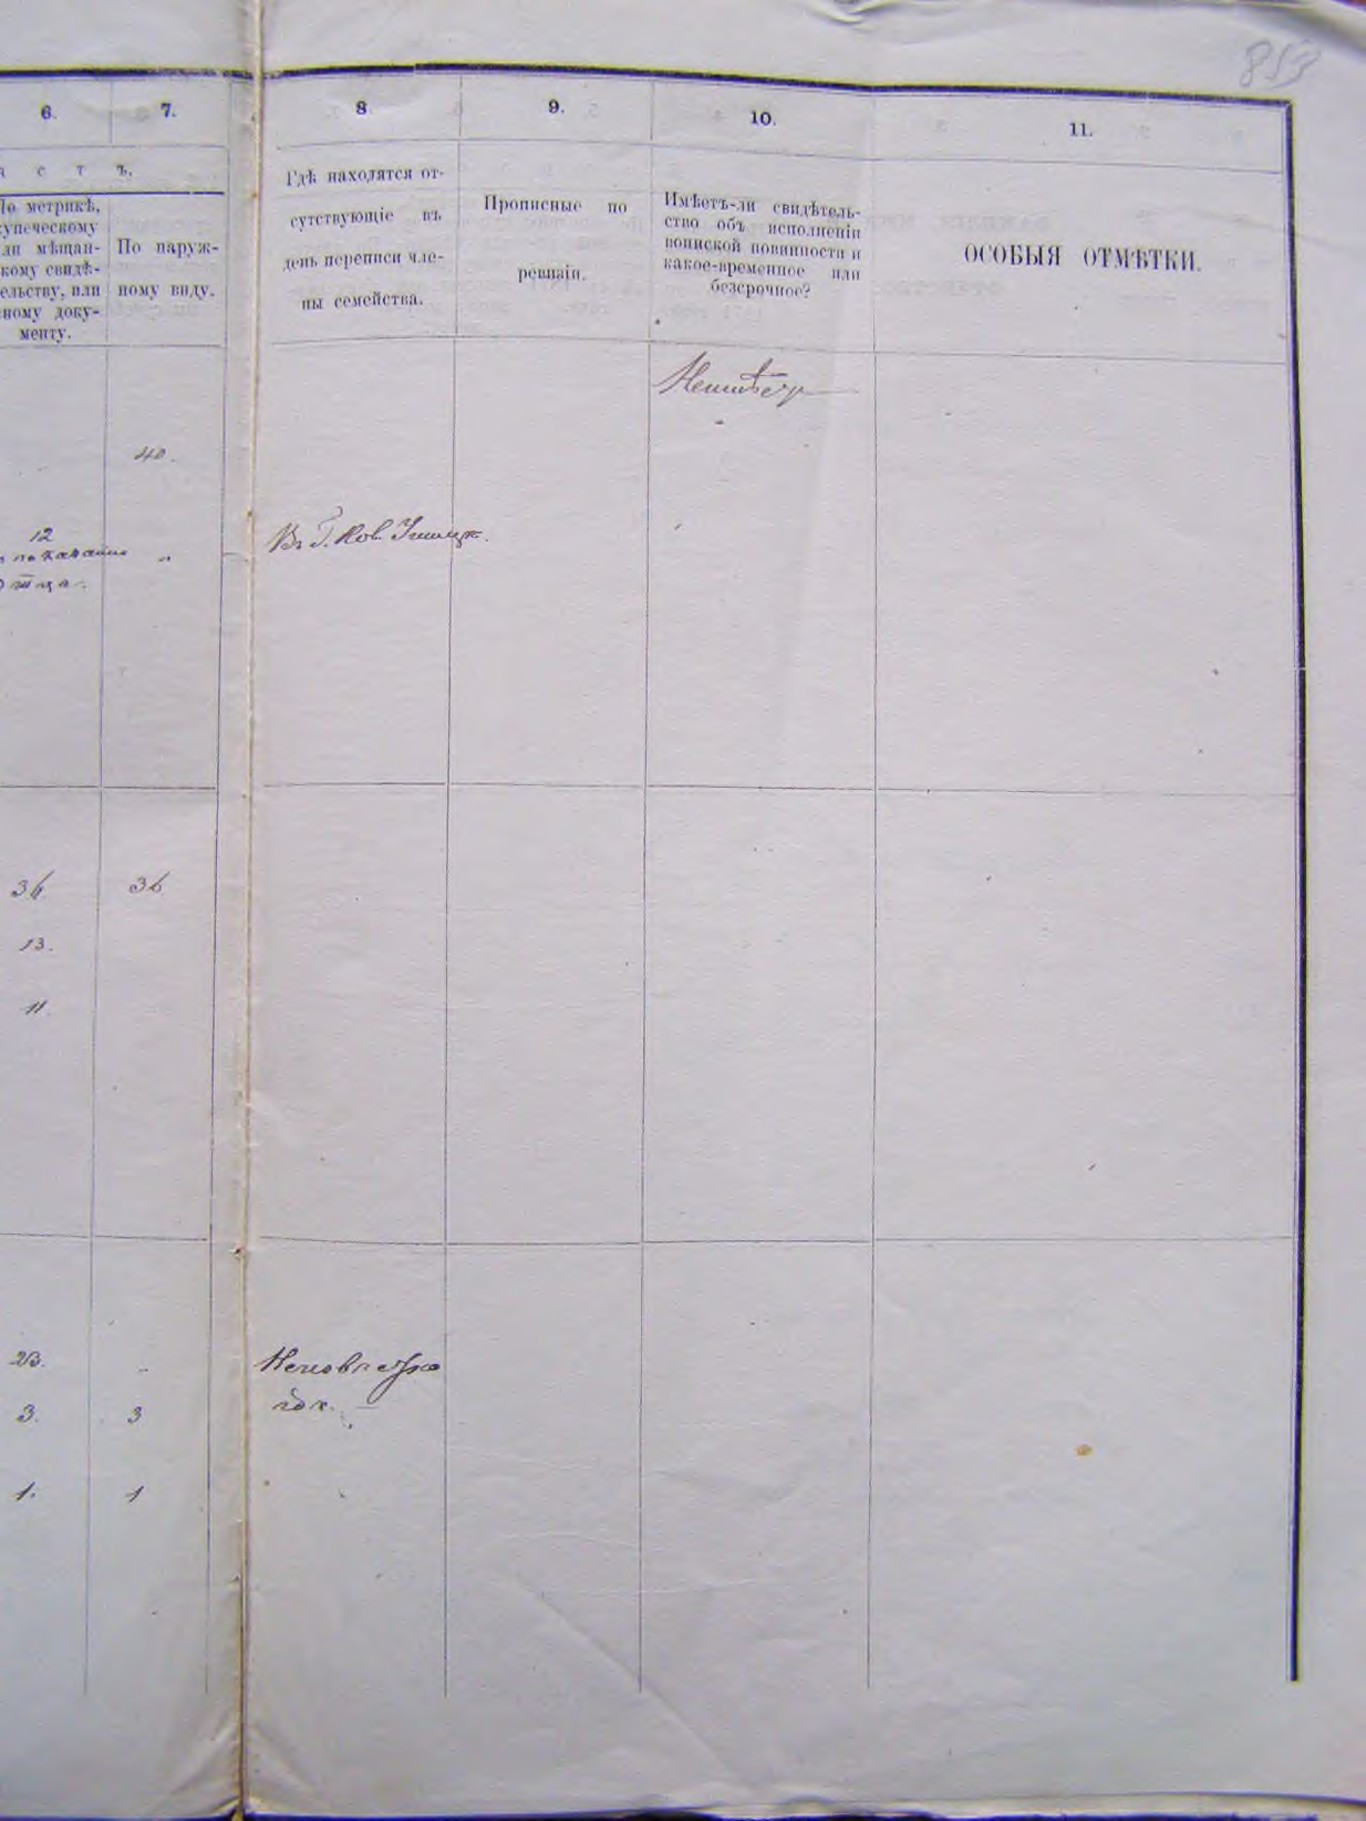 853
6. 7. 8 9. 10. 11.
с т ъ.
По метрикѣ,
купеческому
или мѣщан-
скому свидѣ-
тельству, или
иному доку-
менту.
По наруж-
ному виду.
Гдѣ находятся от-
сутствующіе въ
день переписи чле-
ны семейства.
Прописные по
ревизіи.
Имѣетъ-ли свидѣтель-
ство объ исполненіи
воинской повинности и
какое-временное или
безсрочное?
ОСОБЫЯ ОТМѢТКИ.
Неимѣетъ
40.
12
по показанію „
отца.
Въ Г. Нов. Ушицѣ.
36 36
13.
11
23. „
3. 3
1. 1